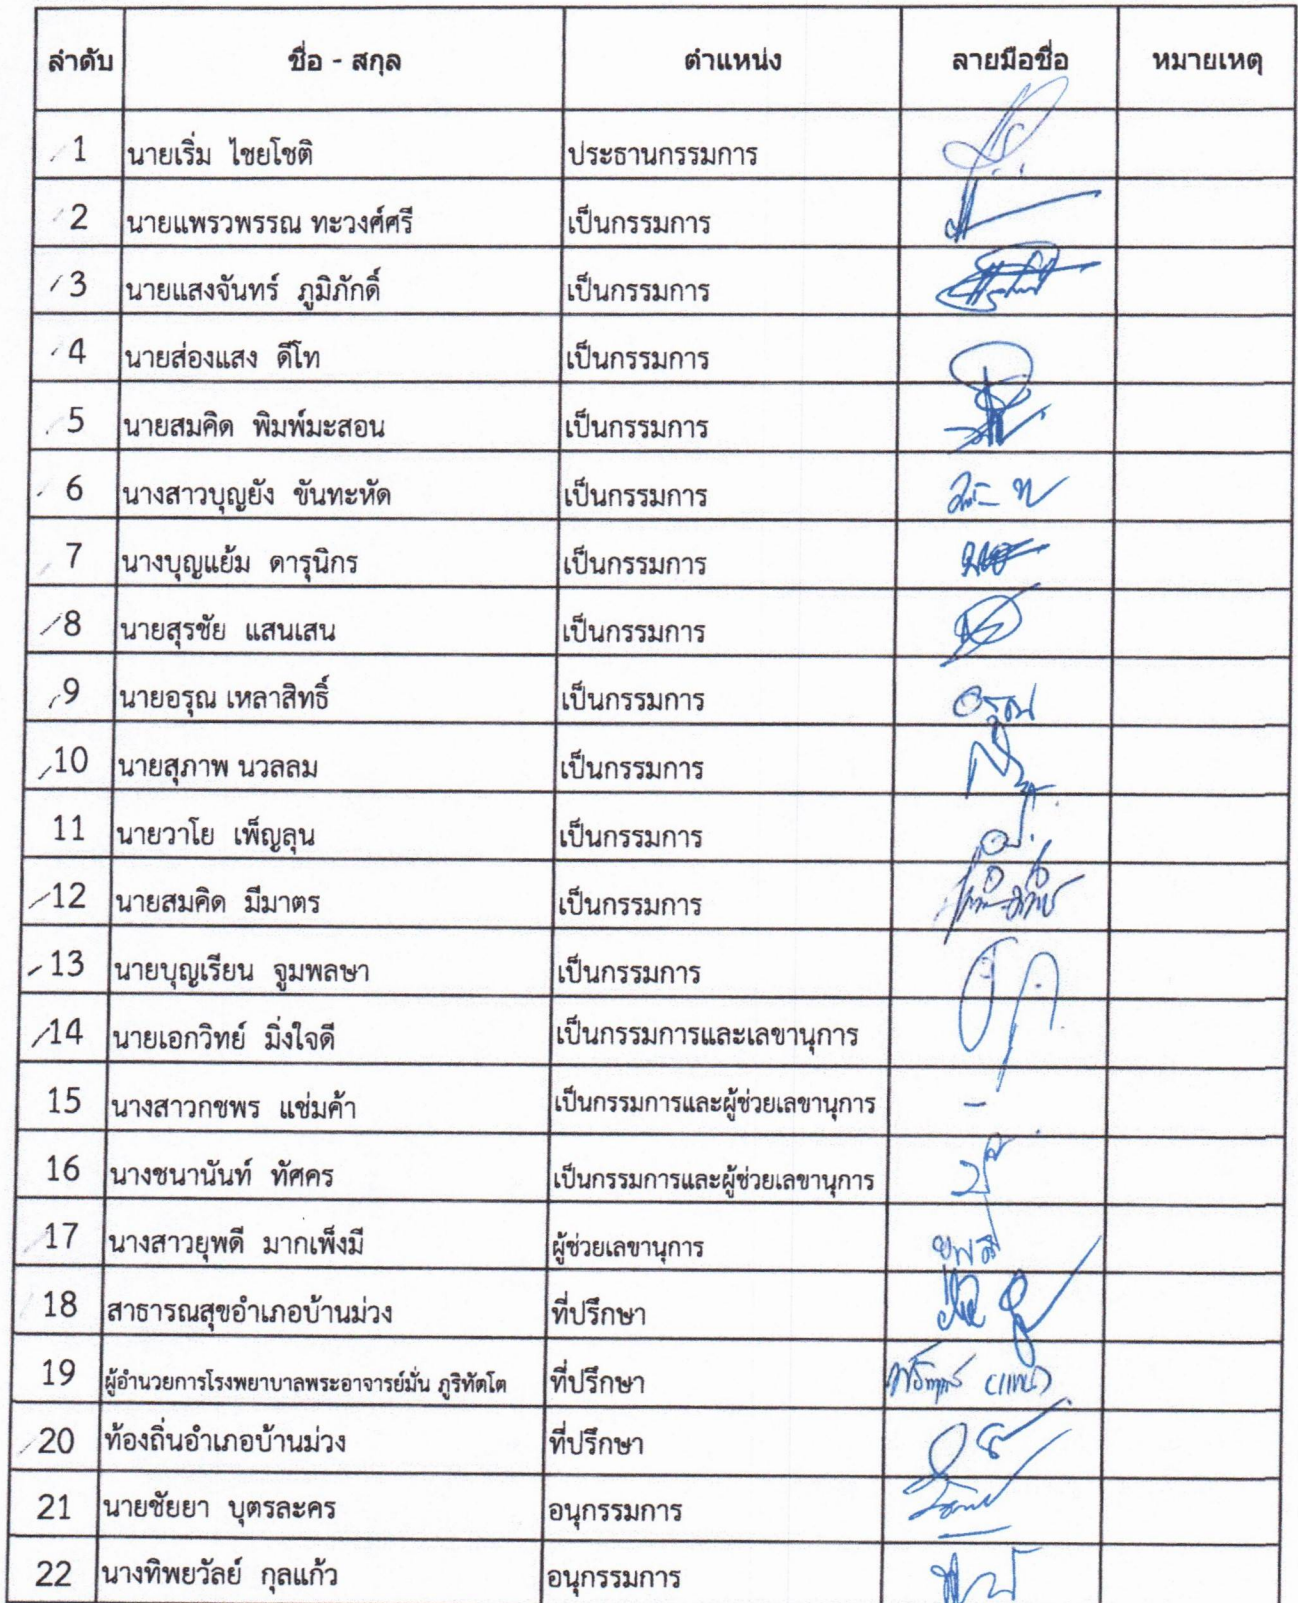 ลำดับ ชื่อ - สกุล ตำแหน่ง ลายมือชื่อ หมายเหตุ
1 นายเริ่ม ไชยโชติ ประธานกรรมการ
2 นายแพรวพรรณ ทะวงศ์ศรี เป็นกรรมการ
3 นายแสงจันทร์ ภูมิภักดิ์ เป็นกรรมการ
4 นายส่องแสง ดีโท เป็นกรรมการ
5 นายสมคิด พิมพ์มะสอน เป็นกรรมการ
6 นางสาวบุญยัง ขันทะหัด เป็นกรรมการ
7 นางบุญแย้ม ดารุนิกร เป็นกรรมการ
8 นายสุรชัย แสนเสน เป็นกรรมการ
9 นายอรุณ เหลาสิทธิ์ เป็นกรรมการ อรุณ
10 นายสุภาพ นวลลม เป็นกรรมการ
11 นายวาโย เพ็ญลุน เป็นกรรมการ
12 นายสมคิด มีมาตร เป็นกรรมการ
13 นายบุญเรียน จูมพลษา เป็นกรรมการ
14 นายเอกวิทย์ มิ่งใจดี เป็นกรรมการและเลขานุการ
15 นางสาวกชพร แช่มค้า เป็นกรรมการและผู้ช่วยเลขานุการ -
16 นางชนานันท์ ทัศคร เป็นกรรมการและผู้ช่วยเลขานุการ
17 นางสาวยุพดี มากเพ็งมี ผู้ช่วยเลขานุการ ยุพดี
18 สาธารณสุขอำเภอบ้านม่วง ที่ปรึกษา
19 ผู้อำนวยการโรงพยาบาลพระอาจารย์มั่น ภูริทัตโต ที่ปรึกษา (แทน)
20 ท้องถิ่นอำเภอบ้านม่วง ที่ปรึกษา
21 นายชัยยา บุตรละคร อนุกรรมการ
22 นางทิพยวัลย์ กุลแก้ว อนุกรรมการ